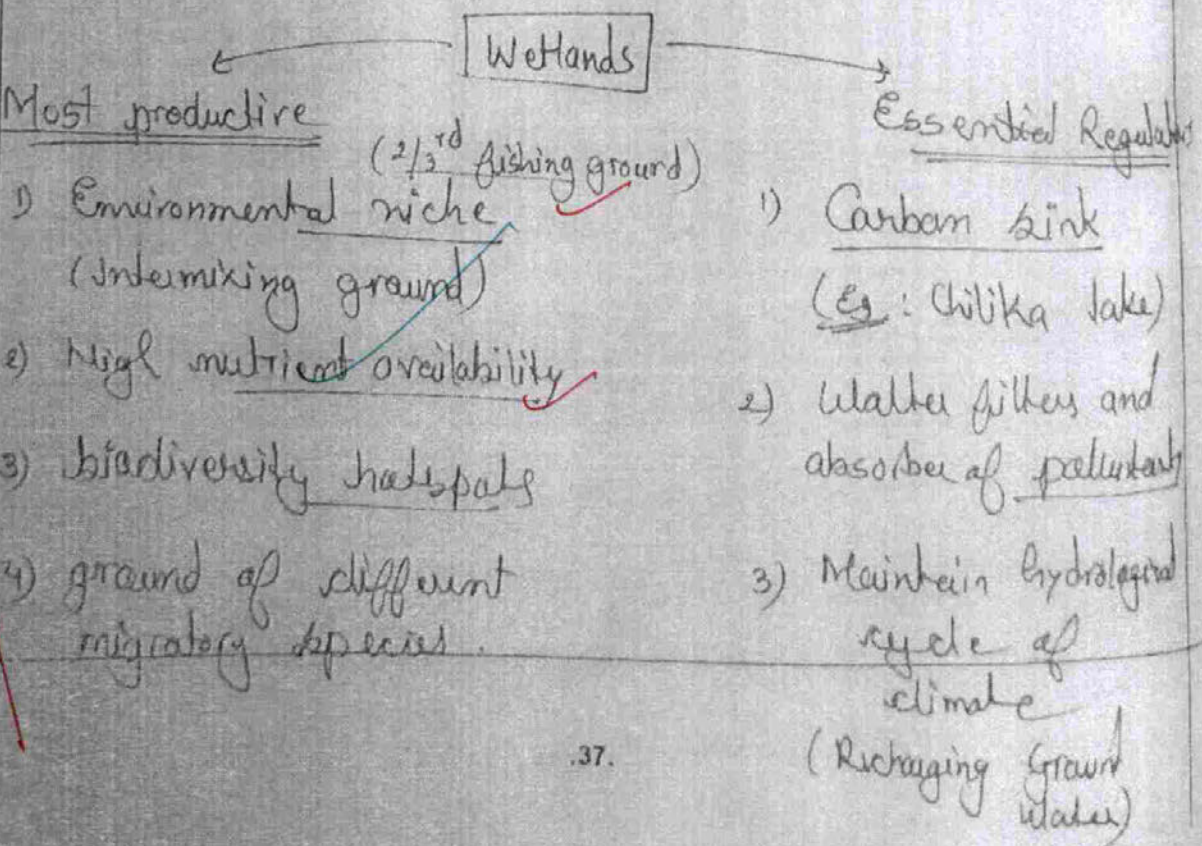 Wetlands
Most productive
(2/3rd fishing ground)
1) Environmental niche
(Intermixing ground)
2) High nutrient availability
3) biodiversity hotspots
4) ground of different
migratory species.
Essential Regulator
1) Carbon sink
(Eg: Chilika lake)
2) Water filters and
absorber of pollutant
3) Maintain hydrological
cycle of
climate
(Recharging Ground
Water)
.37.